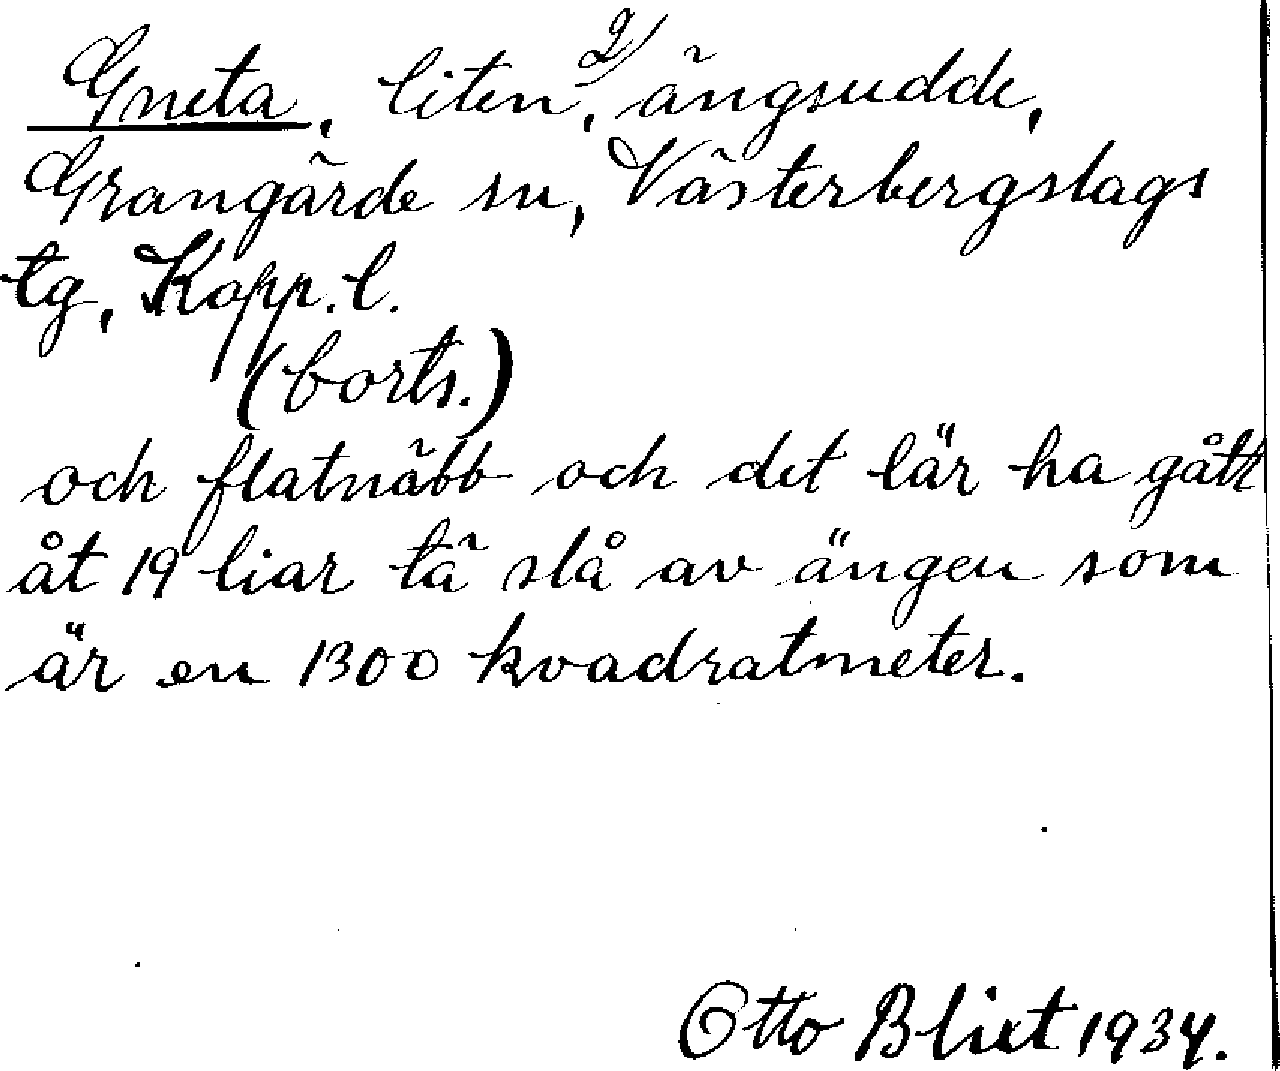 Gneta, liten, 2/ ängsudde,
Grangärde sn, Västerbergslags
tg, Kopp. l.
(forts.)
och flatnäbb och det lär ha gått
åt 19 liar tä slå av ängen som
är en 1300 kvadratmeter.
Otto Blixt 1934.